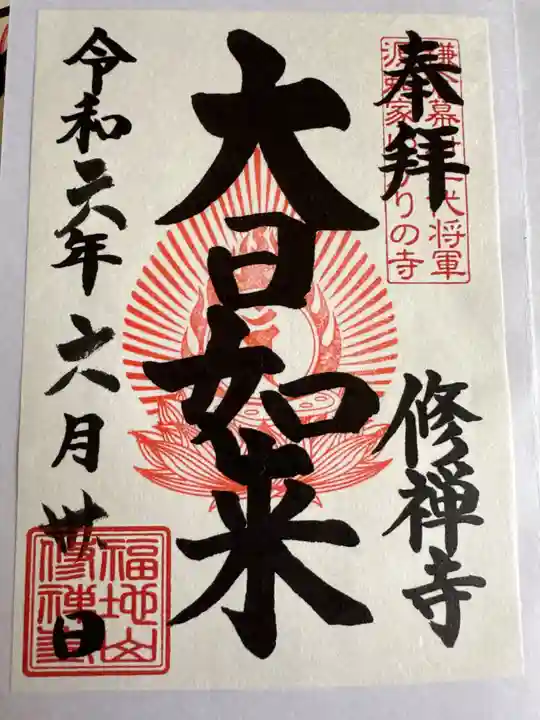 奉拝
鎌倉幕府二代将軍
源頼家ゆかりの寺
修禅寺
大日如来
令和六年六月丗日
福地山
修禅寺